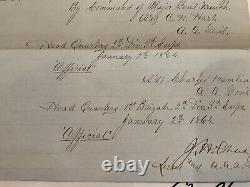 By Command of Major Genl French
(Sd) C. H. Hart
A. A. Genl.
Head Quarters 2d Div 3d Corps
January 2d 1864.
"Official"
(Sd) Charles Hamlin
A. A. Genl
Head Quarters 1st Brigade, 2d Div 3d Corps
January 2d 1864.
"Official"
Lieut and A.A.A.